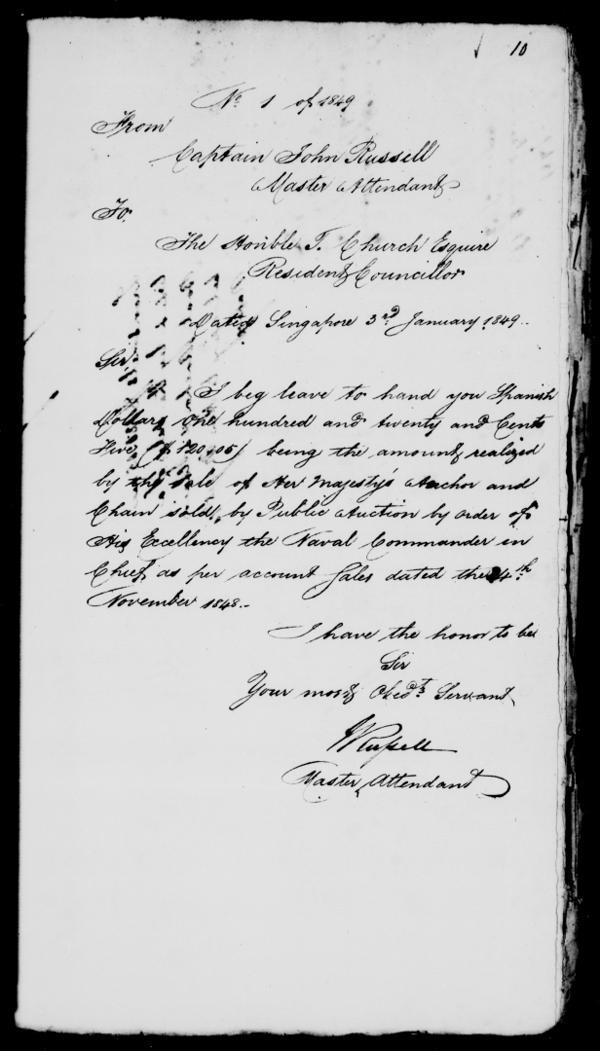 10
No. 1 of 1849
From
Captain John Russell
Master Attendant
To
The Honble T. Church Esquire
Resident Councillor
Dated Singapore 3rd January 1849.
Sir
I beg leave to hand you Spanish
Dollars One hundred and twenty and Cents
Five ($120.05) being the amount realized
by the Sale of Her Majesty's Anchor and
Chain sold by Public Auction by order of
His Excellency the Naval Commander in
Chief as per account Sales dated the 4th
November 1848.
I have the honor to be
Sir
Your most Obedt. Servant
JRussell
Master Attendant